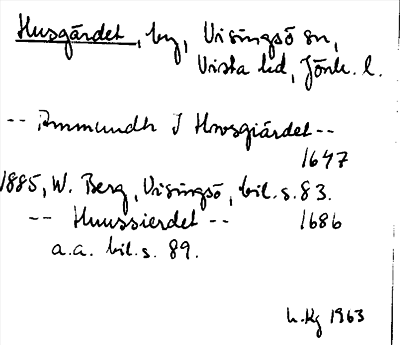 Husgärdet, by, Visingsö sn,
Vista hd, Jönk. l.
-- Ammundh I Hwsgiärdet --
1647
1885, W. Berg, Visingsö, bil. s. 83.
-- Huussierdet -- 1686
a.a. bil. s. 89.
1963